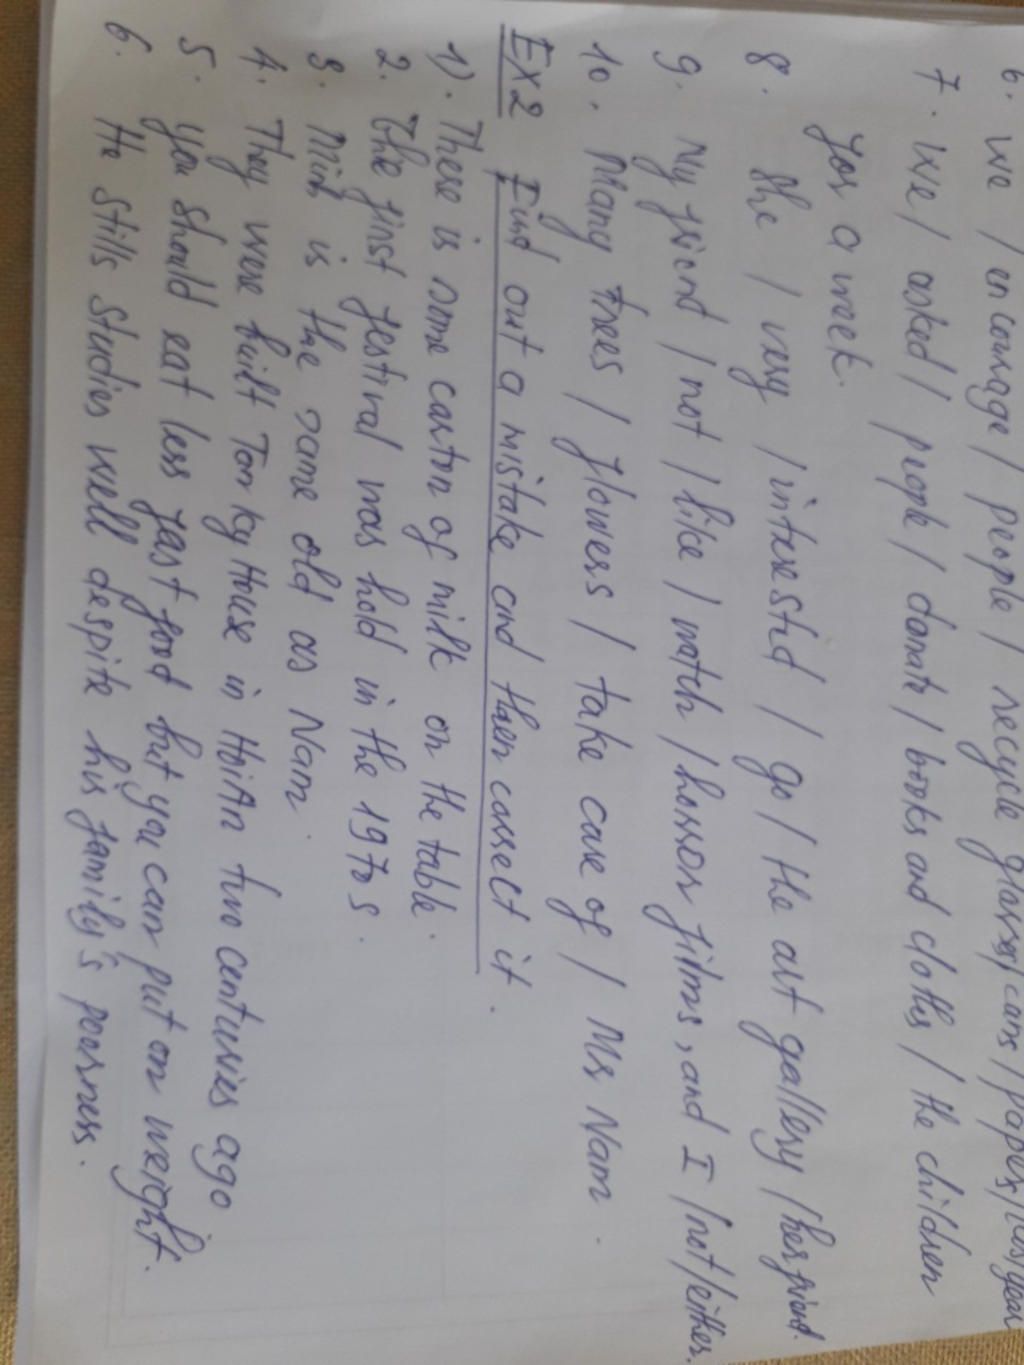 6. We / encourage / people / recycle glasses / cans / paper / last year
7. We / asked / people / donate / books and clothes / the children
for a week.
8. She / very / interested / go / the art gallery / her friend.
9. My friend / not / like / watch / horror films, and I / not / either.
10. Many trees / flowers / take care of / Mr Nam.
Ex2 Find out a mistake and then correct it.
1). There is some carton of milk on the table.
2. The first festival was hold in the 1970s.
3. Minh is the same old as Nam.
4. They were built Tan Ky House in HoiAn two centuries ago
5. You should eat less fast food but you can put on weight.
6. He stills studies well despite his family's poorness.